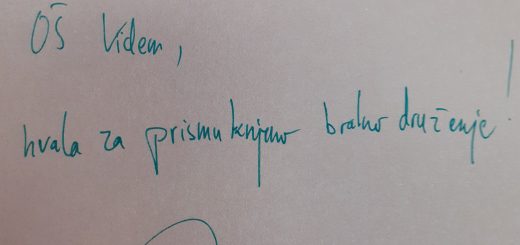 OŠ Videm,
hvala za prismuknjeno bralno druženje!